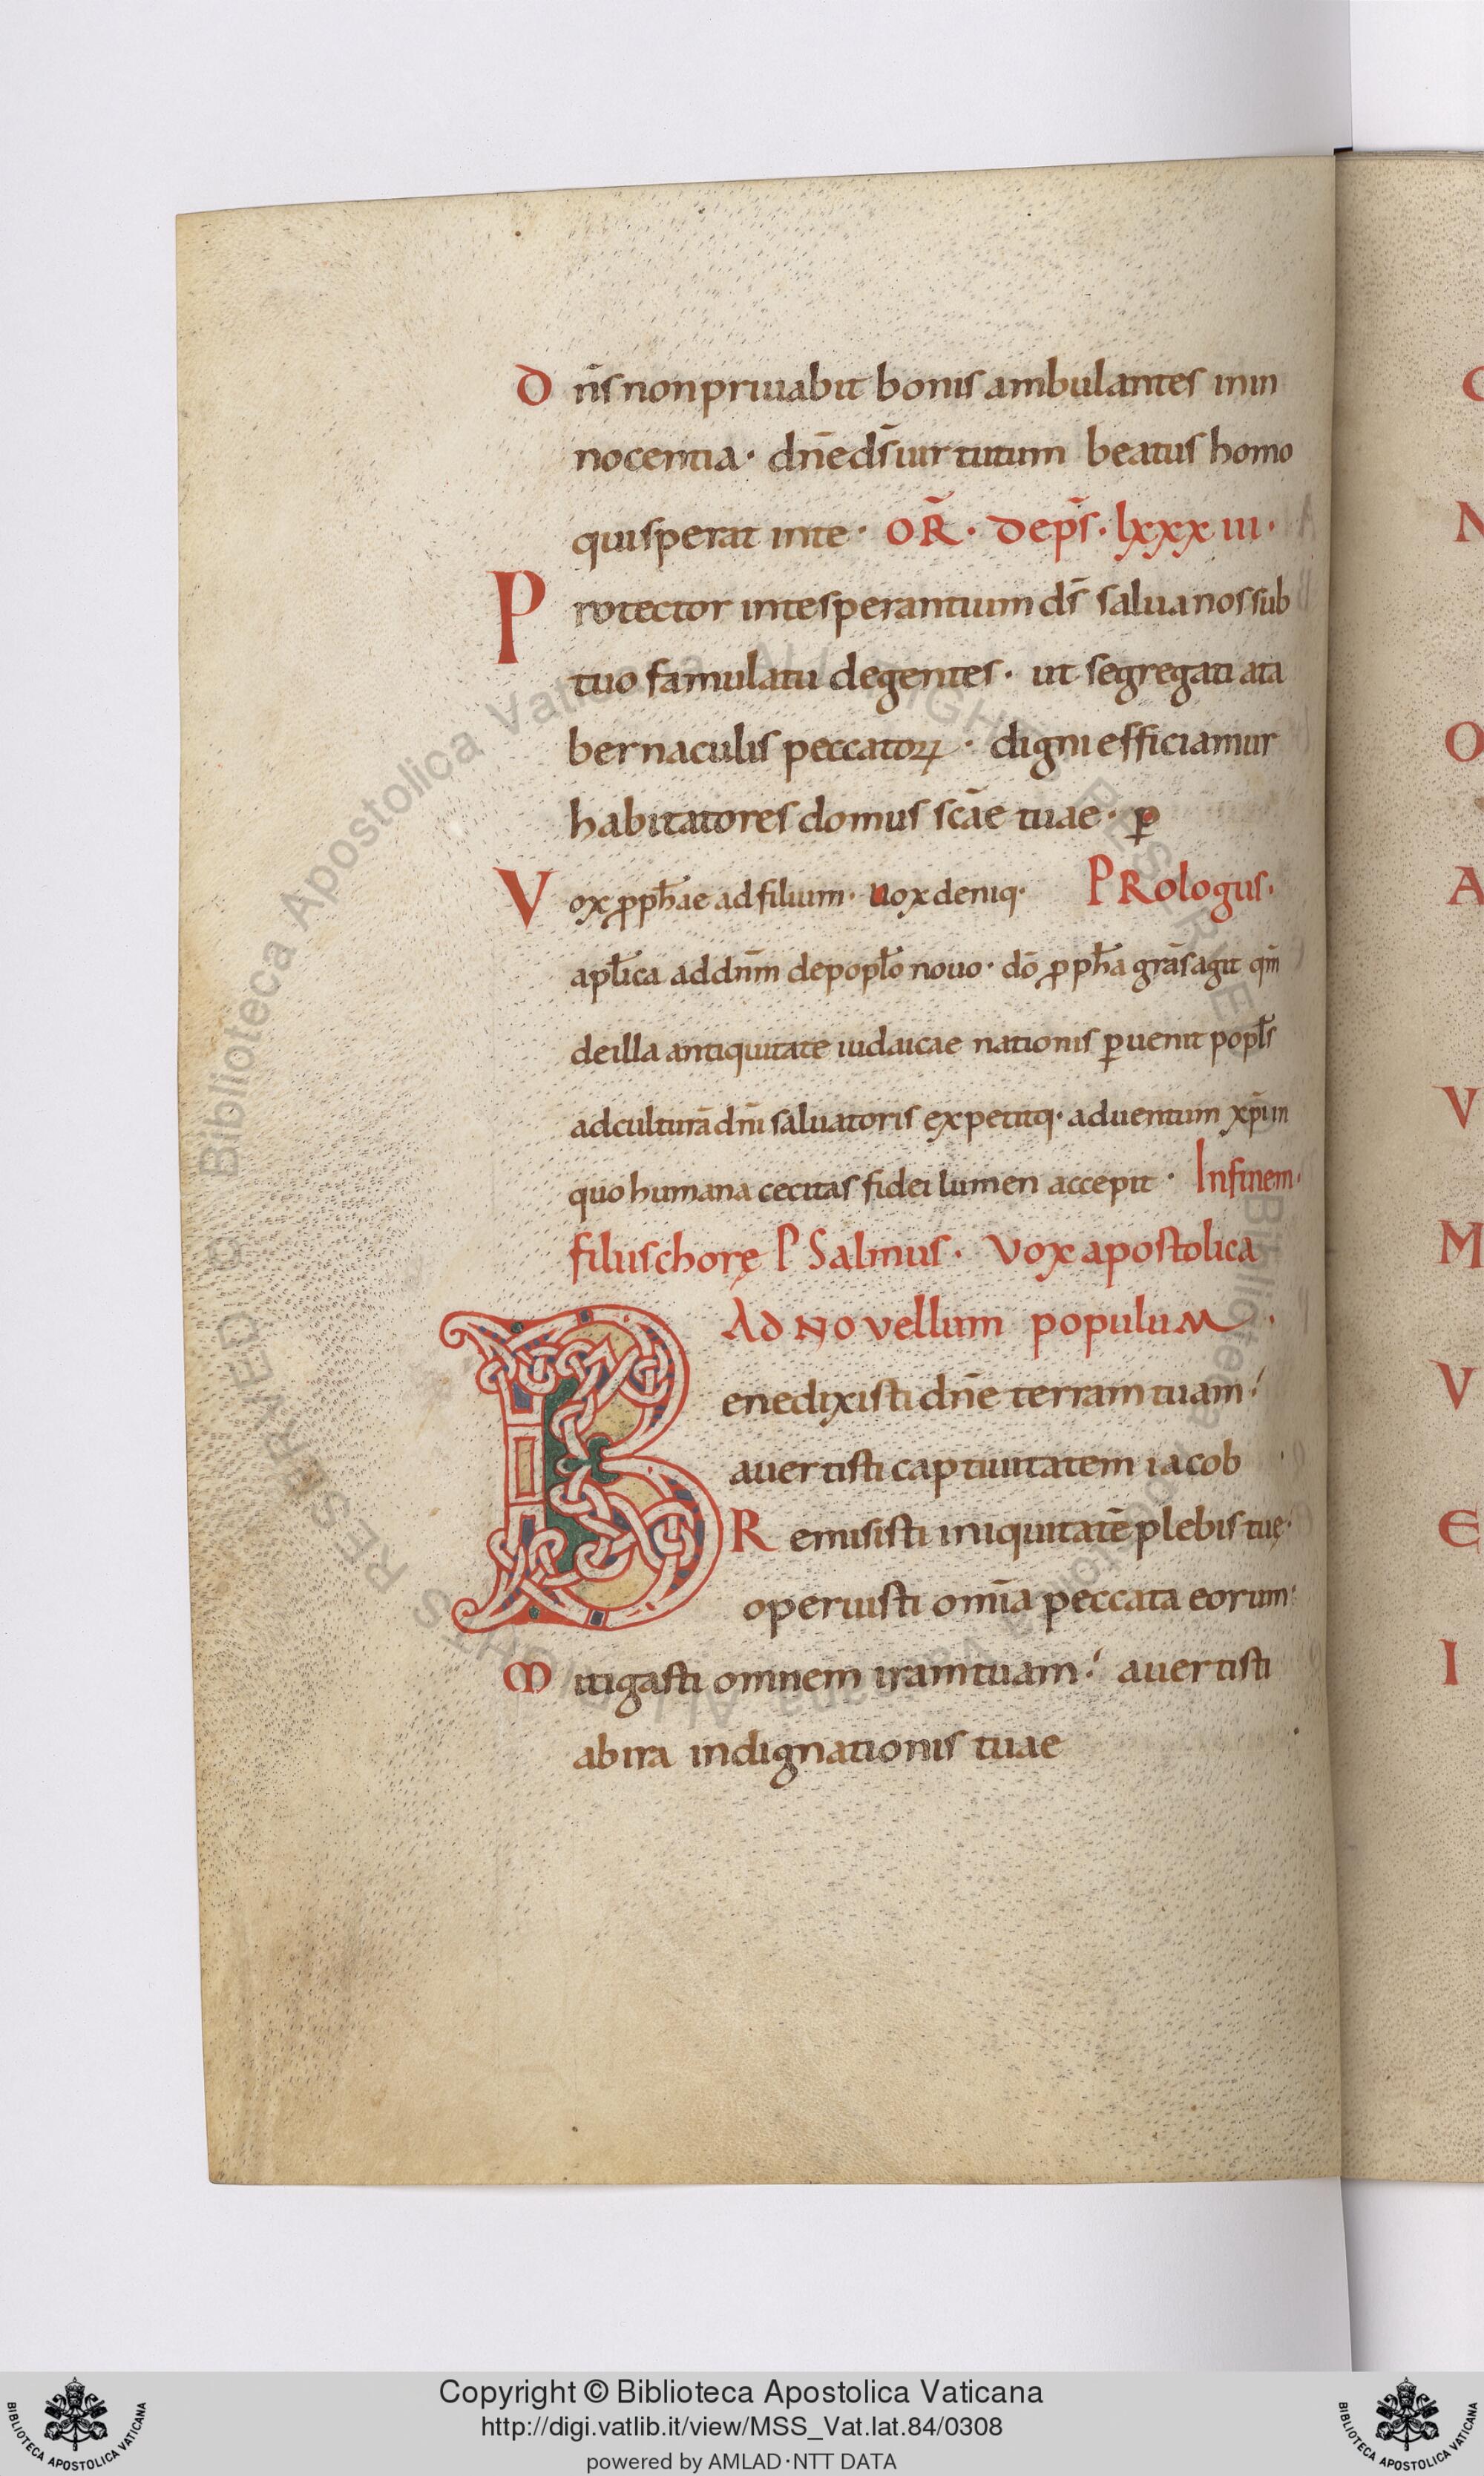 Dn̄s non priuabit bonis ambulantes in in
nocentia· dn̄e ds̄ uirtutum beatus homo
qui sperat in te· OR̄· De ps̄· lxxxiii·
Protector in te sperantium ds̄ salua nos sub
tuo famulatu degentes· ut segregati a ta
bernaculis peccatoꝝ· digni efficiamur
habitatores domus scāe tuae· ꝑ
Vox ꝓph̄ae ad filium· uox deniq· PRologus·
apl̄ica ad dn̄m de popl̄o nouo· dō ꝓph̄a grās agit qm̄
de illa antiquitate iudaicae nationis ꝑuenit popl̄s
ad culturā dn̄i saluatoris expetitq· aduentum xp̄i in
quo humana cecitas fidei lumen accepit· In finem·
filiis chorę PSalmus· Vox apostolica
Ad Novellum populum·
Benedixisti dn̄e terram tuam·
auertisti captiuitatem iacob
Remisisti iniquitatē plebis tuę·
operuisti omīa peccata eorum·
Mitigasti omnem iram tuam· auertisti
ab ira indignationis tuae
C
N
O
A
V
M
V
E
I
© Biblioteca Apostolica Vaticana ALL RIGHTS RESERVED
Copyright © Biblioteca Apostolica Vaticana
http://digi.vatlib.it/view/MSS_Vat.lat.84/0308
powered by AMLAD·NTT DATA
BIBLIOTECA APOSTOLICA VATICANA
BIBLIOTECA APOSTOLICA VATICANA